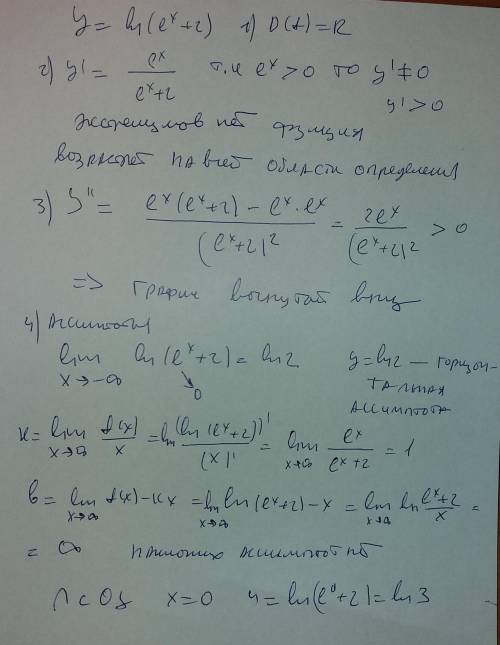 y = ln(eˣ+2) 1) D(f)=R
2) y' = eˣ/(eˣ+2) т.к eˣ>0 то y'≠0
y'>0
Экстремумов нет функция
возрастает на всей области определения
3) y'' = (eˣ(eˣ+2) - eˣ·eˣ)/(eˣ+2)² = 2eˣ/(eˣ+2)² > 0
=> График вогнутый вниз
4) Ассимптоты
lim x→-∞ ln(eˣ+2) = ln2 y=ln2 – горизон-
0 тальная
ассимптота
k = lim x→∞ f(x)/x = lim (ln(eˣ+2))'/(x)' = lim x→∞ eˣ/(eˣ+2) = 1
b = lim x→∞ f(x)-kx = lim x→∞ ln(eˣ+2)-x = lim x→∞ ln (eˣ+2)/x =
= ∞ наклонных ассимптот нет
∩ с Oy x=0 y=ln(e⁰+2)=ln3